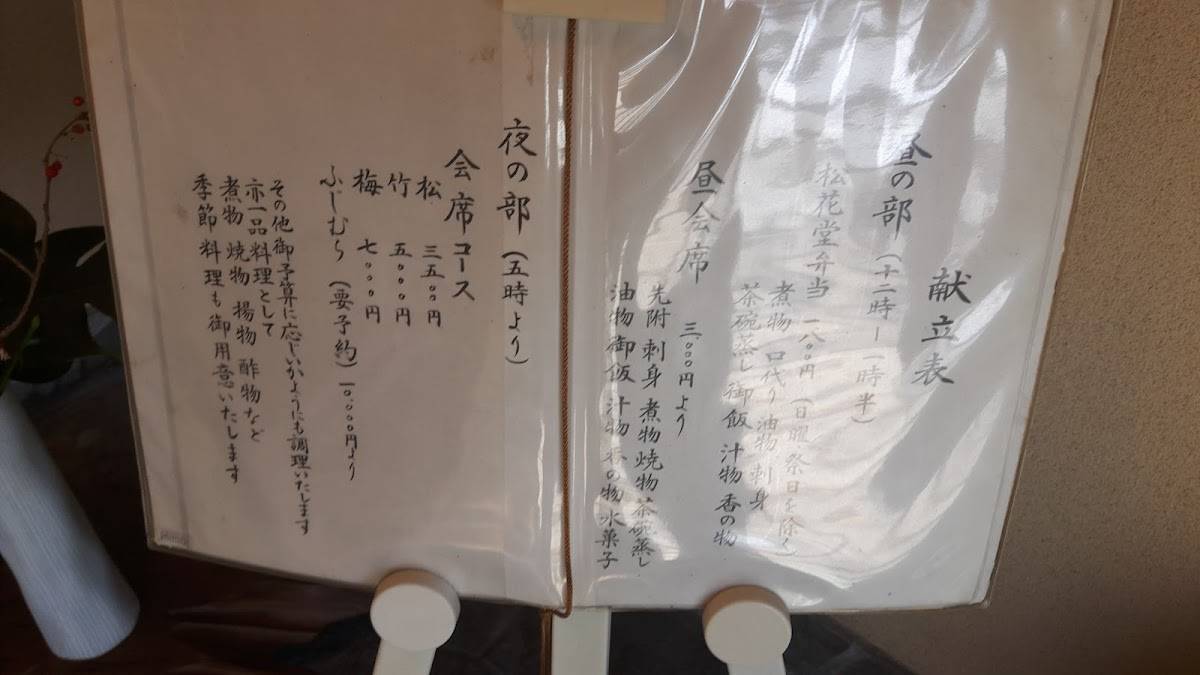 献立表
昼の部（十二時ー一時半）
松花堂弁当 一八〇〇円（日曜・祭日を除く）
煮物 口代り 油物 刺身
茶碗蒸し 御飯 汁物 香の物
昼会席 三、〇〇〇円より
先附 刺身 煮物 焼物 茶碗蒸し
油物 御飯 汁物 香の物 水菓子
夜の部（五時より）
会席コース
松 三五〇〇円
竹 五〇〇〇円
梅 七〇〇〇円
ふじむら（要予約）一〇、〇〇〇円より
その他御予算に応じいかようにも調理いたします
亦一品料理として
煮物 焼物 揚物 酢物など
季節料理も御用意いたします